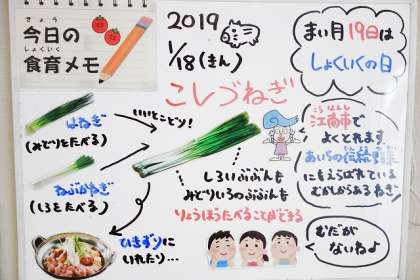 きょう
今日の
しょくいく
食育メモ
2019
1/18(きん)
まい月19日は
しょくいくの日
こしづねぎ
はねぎ
(みどりをたべる)
いいとこどり!
ねぶかねぎ
(しろをたべる)
しろいぶぶんも
みどりいろのぶぶんも
りょうほうたべることができる
こうなんし
江南市で
よくとれます。
あいちの伝統野菜
にもえらばれている
むかしからあるねぎ
ひきずりに
いれたり…
むだが
ないねよ